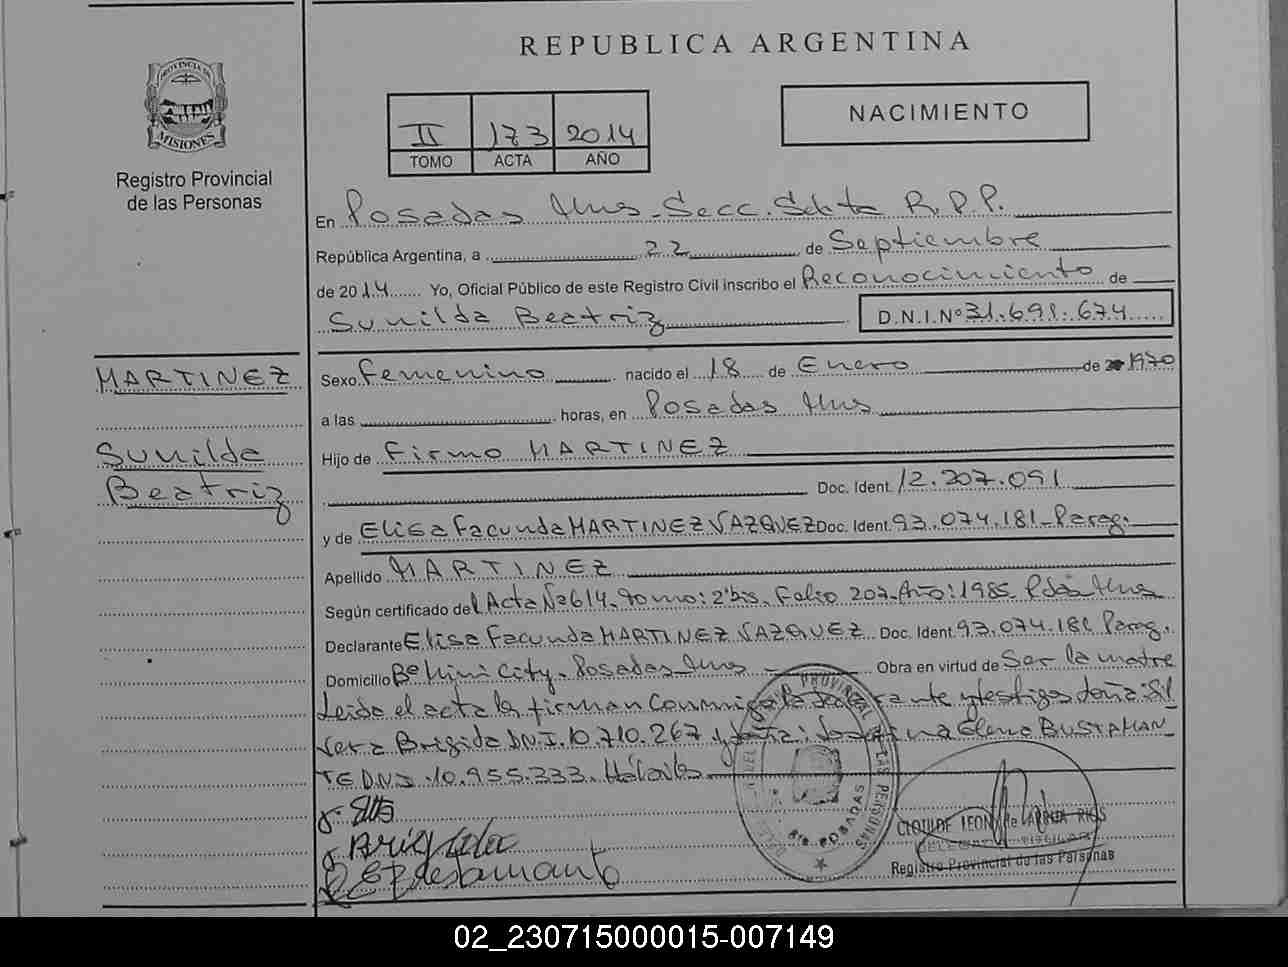 REPUBLICA ARGENTINA
PROVINCIA DE
MISIONES
Registro Provincial
de las Personas
II 173 2014
TOMO ACTA AÑO
NACIMIENTO
En Posadas Mns. Secc. Sexta R.P.P.
República Argentina, a 22 de Septiembre
de 2014 Yo, Oficial Público de este Registro Civil inscribo el Reconocimiento de
Sunilda Beatriz D.N.I.Nº 31.691.674
MARTINEZ
Sunilda
Beatriz
Sexo Femenino nacido el 18 de Enero de 1970
a las horas, en Posadas Mns
Hijo de Firmo MARTINEZ
Doc. Ident. 12.207.091
y de Elisa Facunda MARTINEZ VAZQUEZ Doc. Ident. 93.074.181 - Parag.
Apellido MARTINEZ
Según certificado del Acta Nº 614. Tomo: 2º bis. Folio 207. Año: 1985 Pdas Mns
Declarante Elisa Facunda MARTINEZ VAZQUEZ Doc. Ident. 93.074.181 Parag.
Domicilio Bº Mini City - Posadas Mns Obra en virtud de Ser la madre
Leida el acta la firman Conmigo la declarante y testigo doña:
Vera Brigida DN.I. 10.710.267 y doña: Elena BUSTAMAN
TE DNI 10.955.333.
REGISTRO PROVINCIAL DE LAS PERSONAS
POSADAS
CLOTILDE LEONI de LARREA RIOS
Registro Provincial de las Personas
02_230715000015-007149